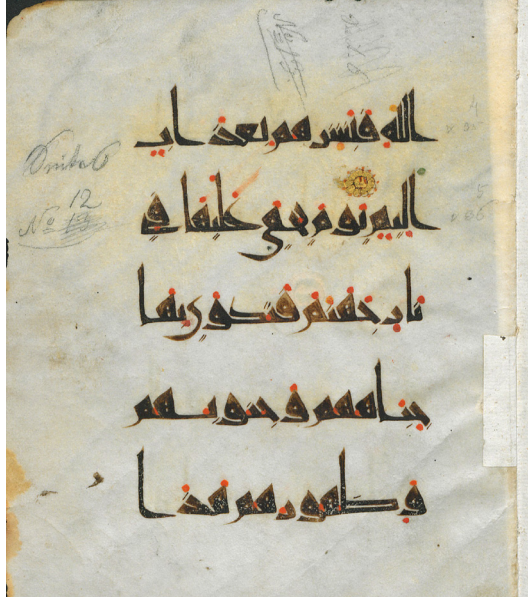 الله فبشرهم بعذاب
اليم يوم يحمى عليها في
نار جهنم فتكوى بها
جباههم وجنوبهم
وظهورهم هذا
12
No